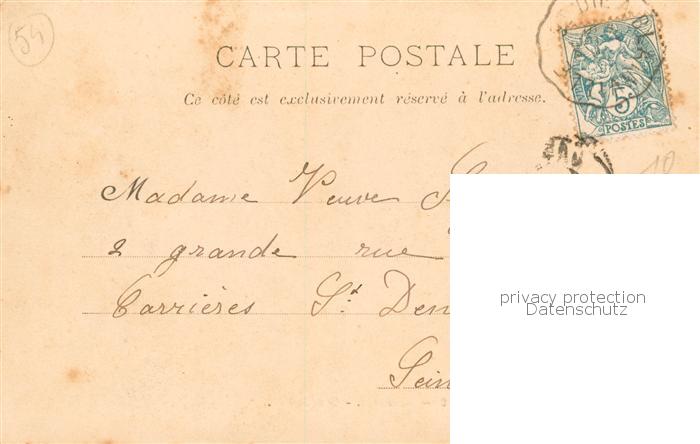 54
CARTE POSTALE
Ce côté est exclusivement réservé à l'adresse.
5
POSTES
10
Madame Veuve
2 grande rue
Carrières St. Den
privacy protection
Datenschutz
Sein